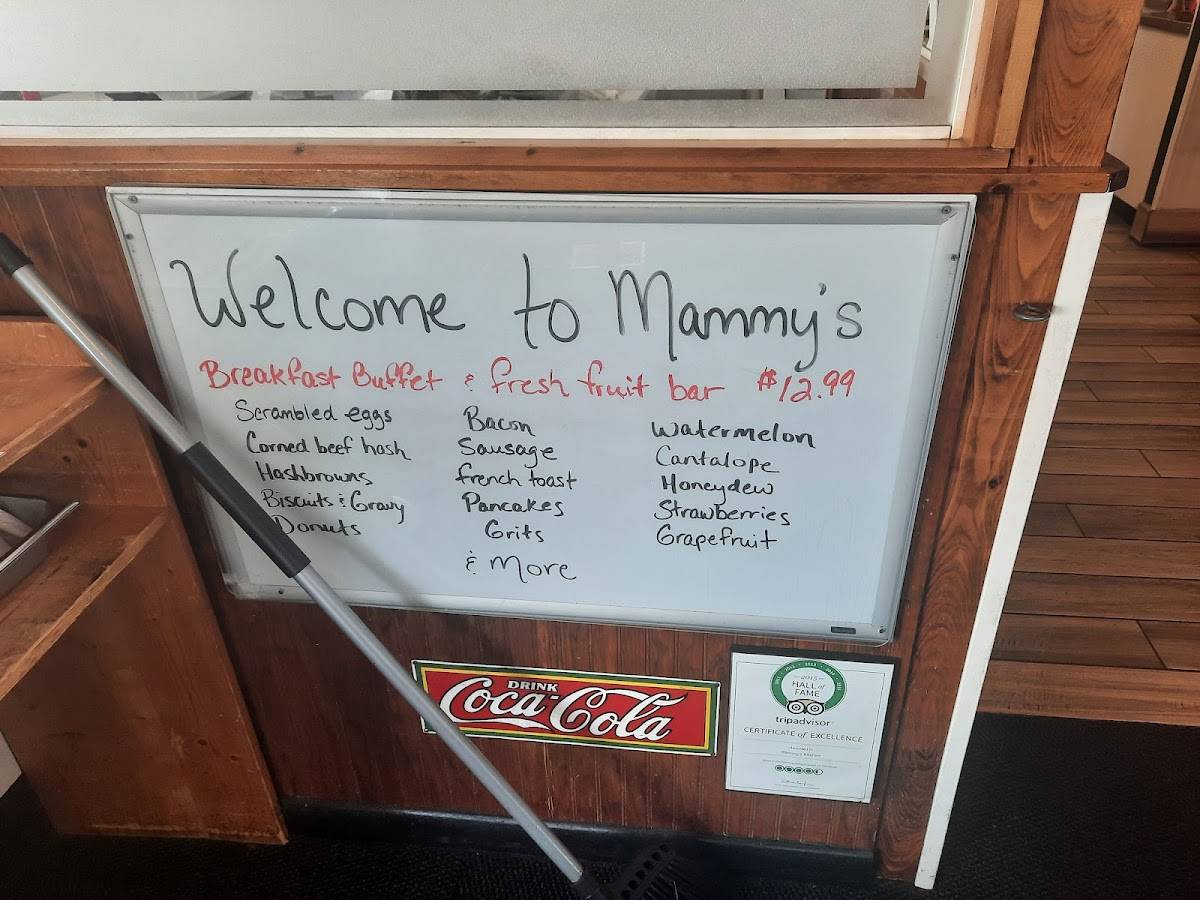 Welcome to Mammy's
Breakfast Buffet & fresh fruit bar $12.99
Scrambled eggs
Corned beef hash
Hashbrowns
Biscuits & Gravy
Donuts
Bacon
Sausage
french toast
Pancakes
Grits
& More
Watermelon
Cantalope
Honeydew
Strawberries
Grapefruit
DRINK
Coca-Cola
2015
HALL of
FAME
tripadvisor
CERTIFICATE of EXCELLENCE